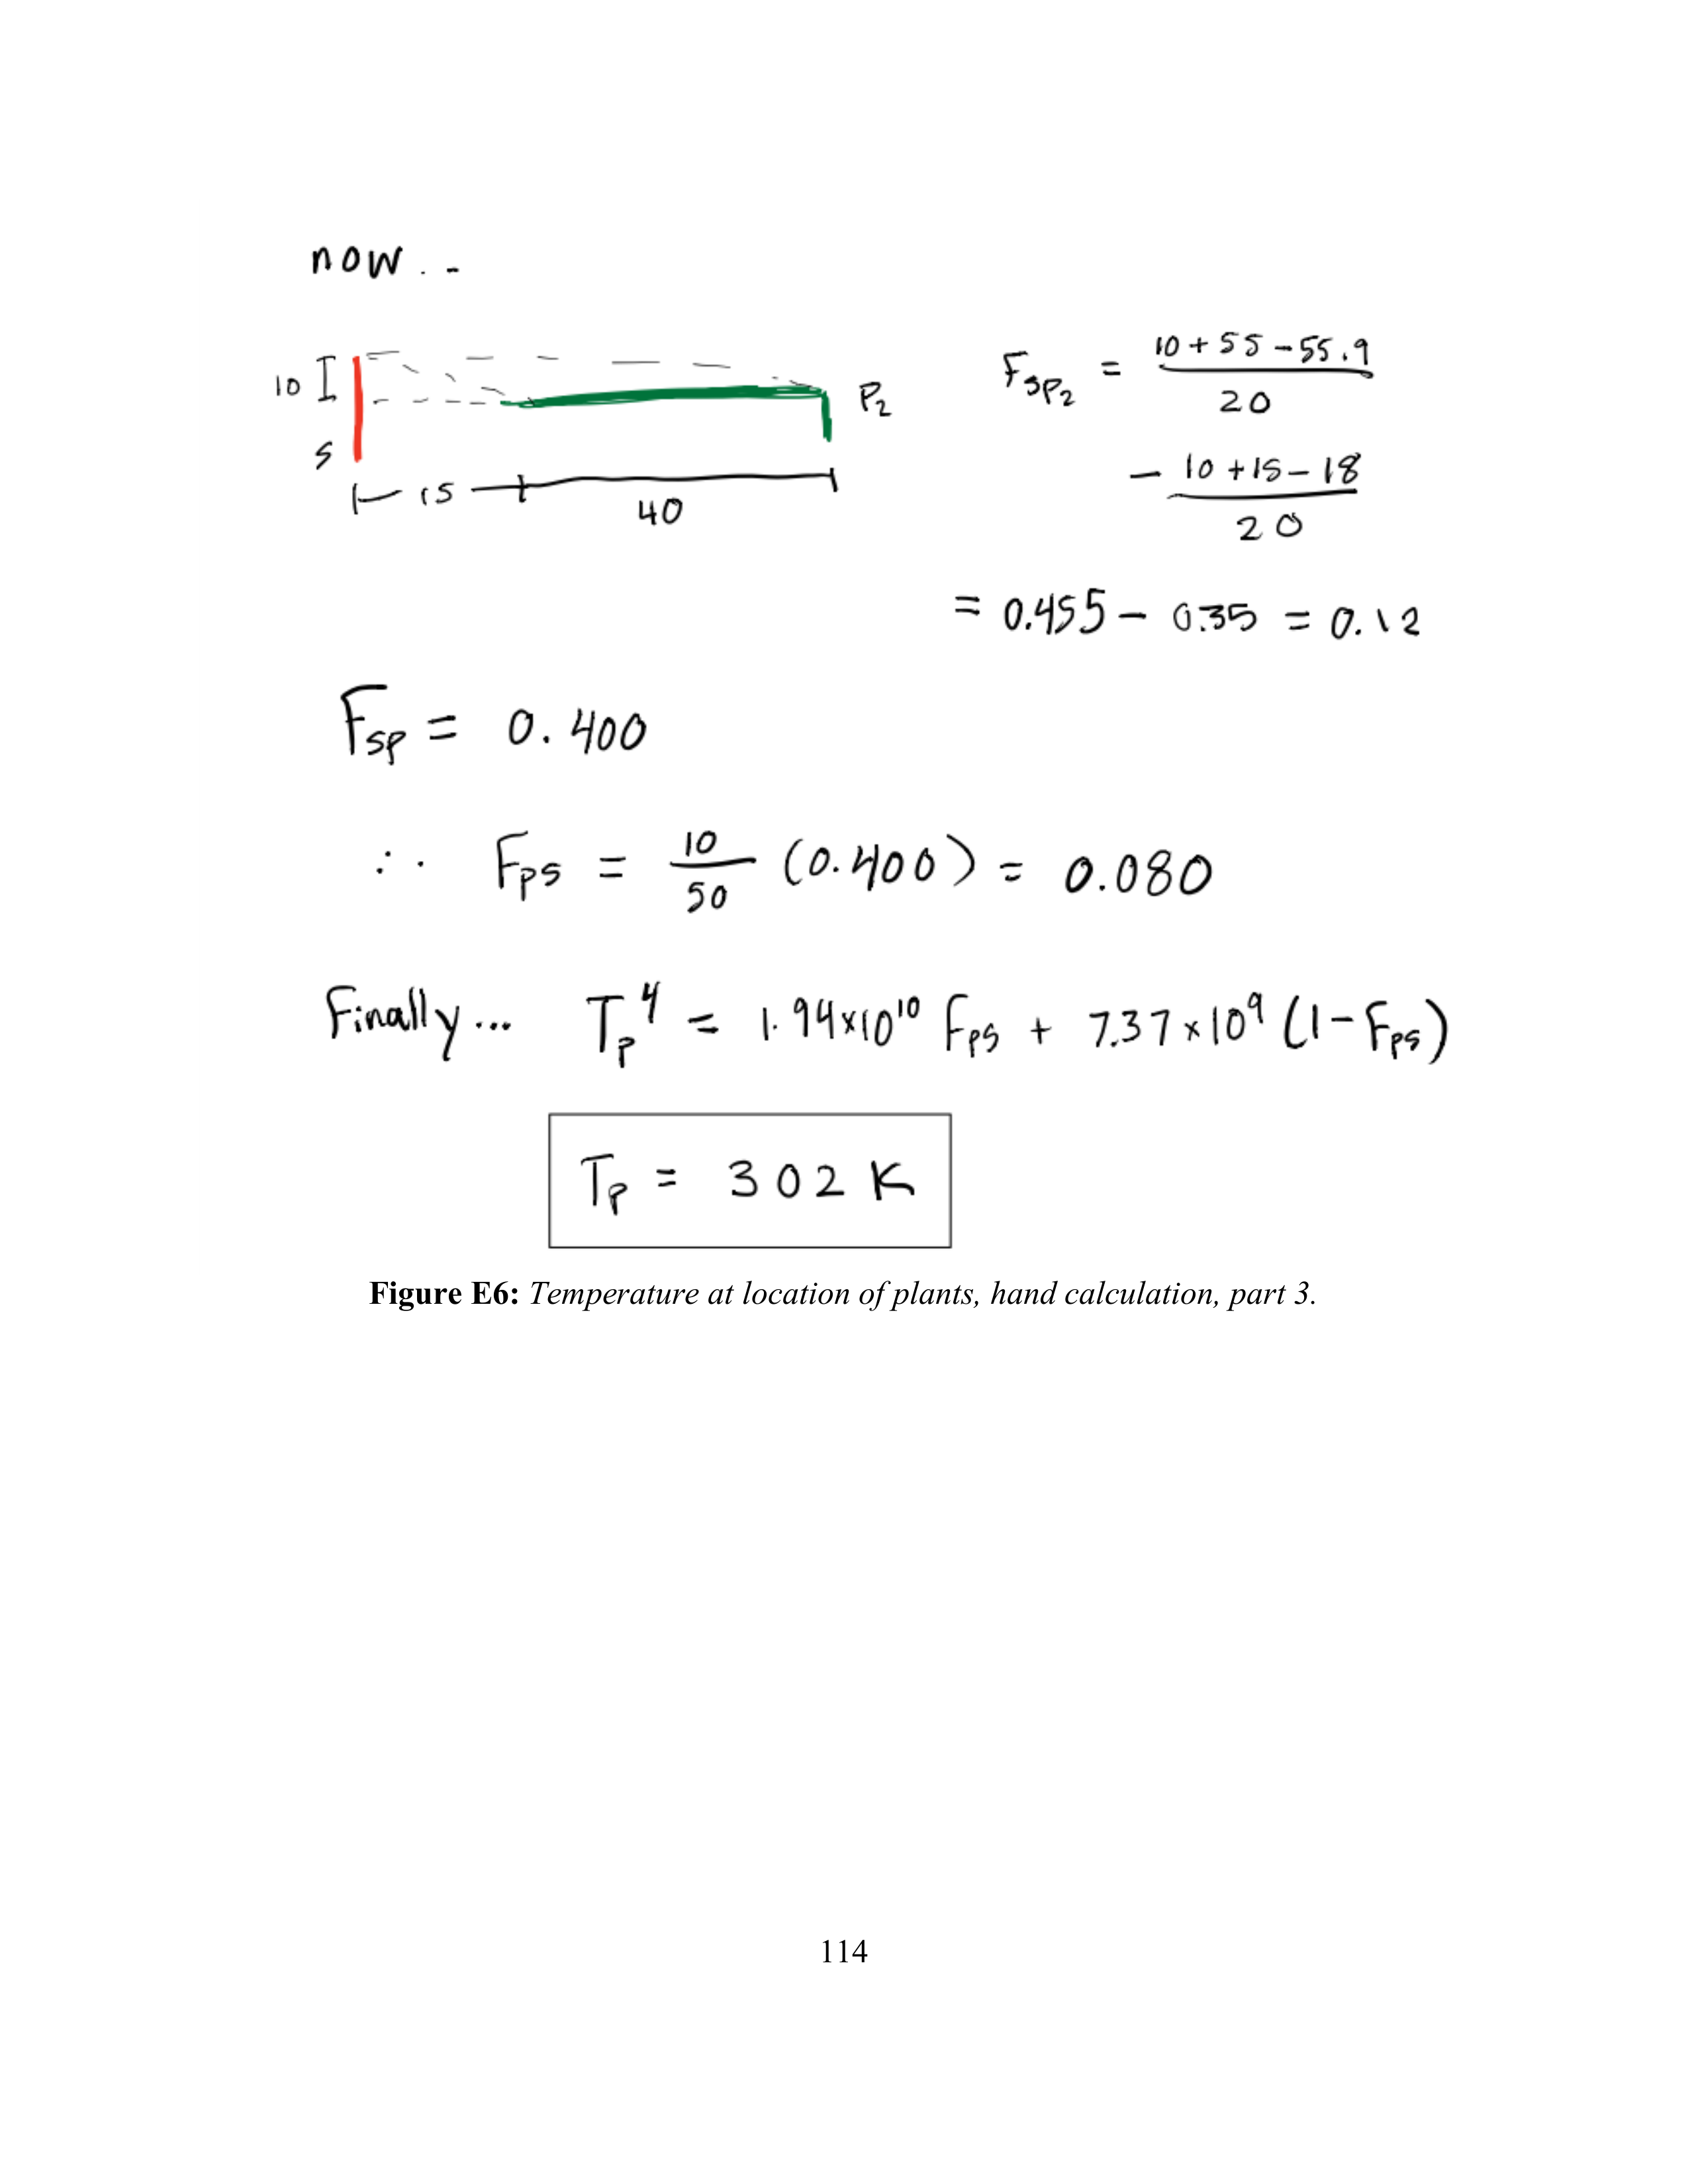 now...
10
S
15
40
P₂
F_SP₂ = (10 + 55 - 55.9) / 20
- (10 + 15 - 18) / 20
= 0.455 - 0.35 = 0.12
F_SP = 0.400
∴ F_PS = 10/50 (0.400) = 0.080
Finally... T_P⁴ = 1.94×10¹⁰ F_PS + 7.37×10⁹ (1 - F_PS)
T_P = 302 K
Figure E6: Temperature at location of plants, hand calculation, part 3.
114